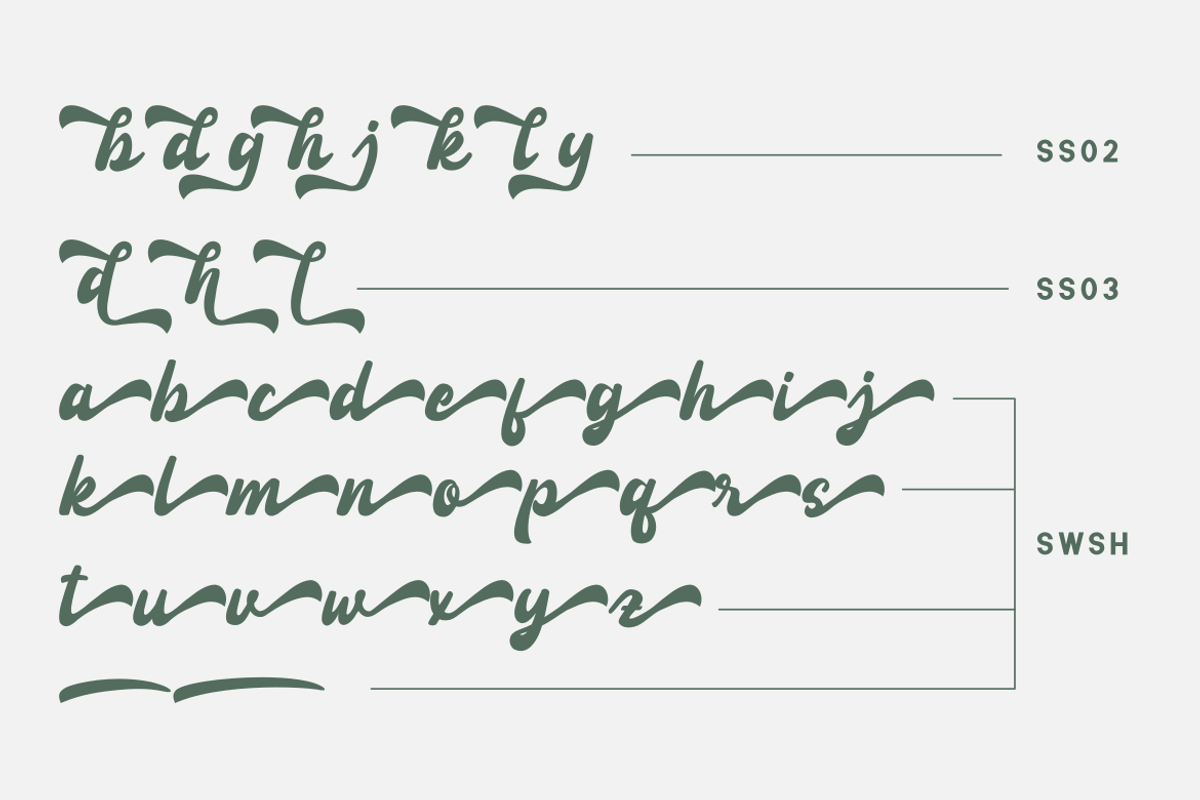 b d g h j k l y SS02
d h l SS03
a b c d e f g h i j
k l m n o p q r s
SWSH
t u v w x y z